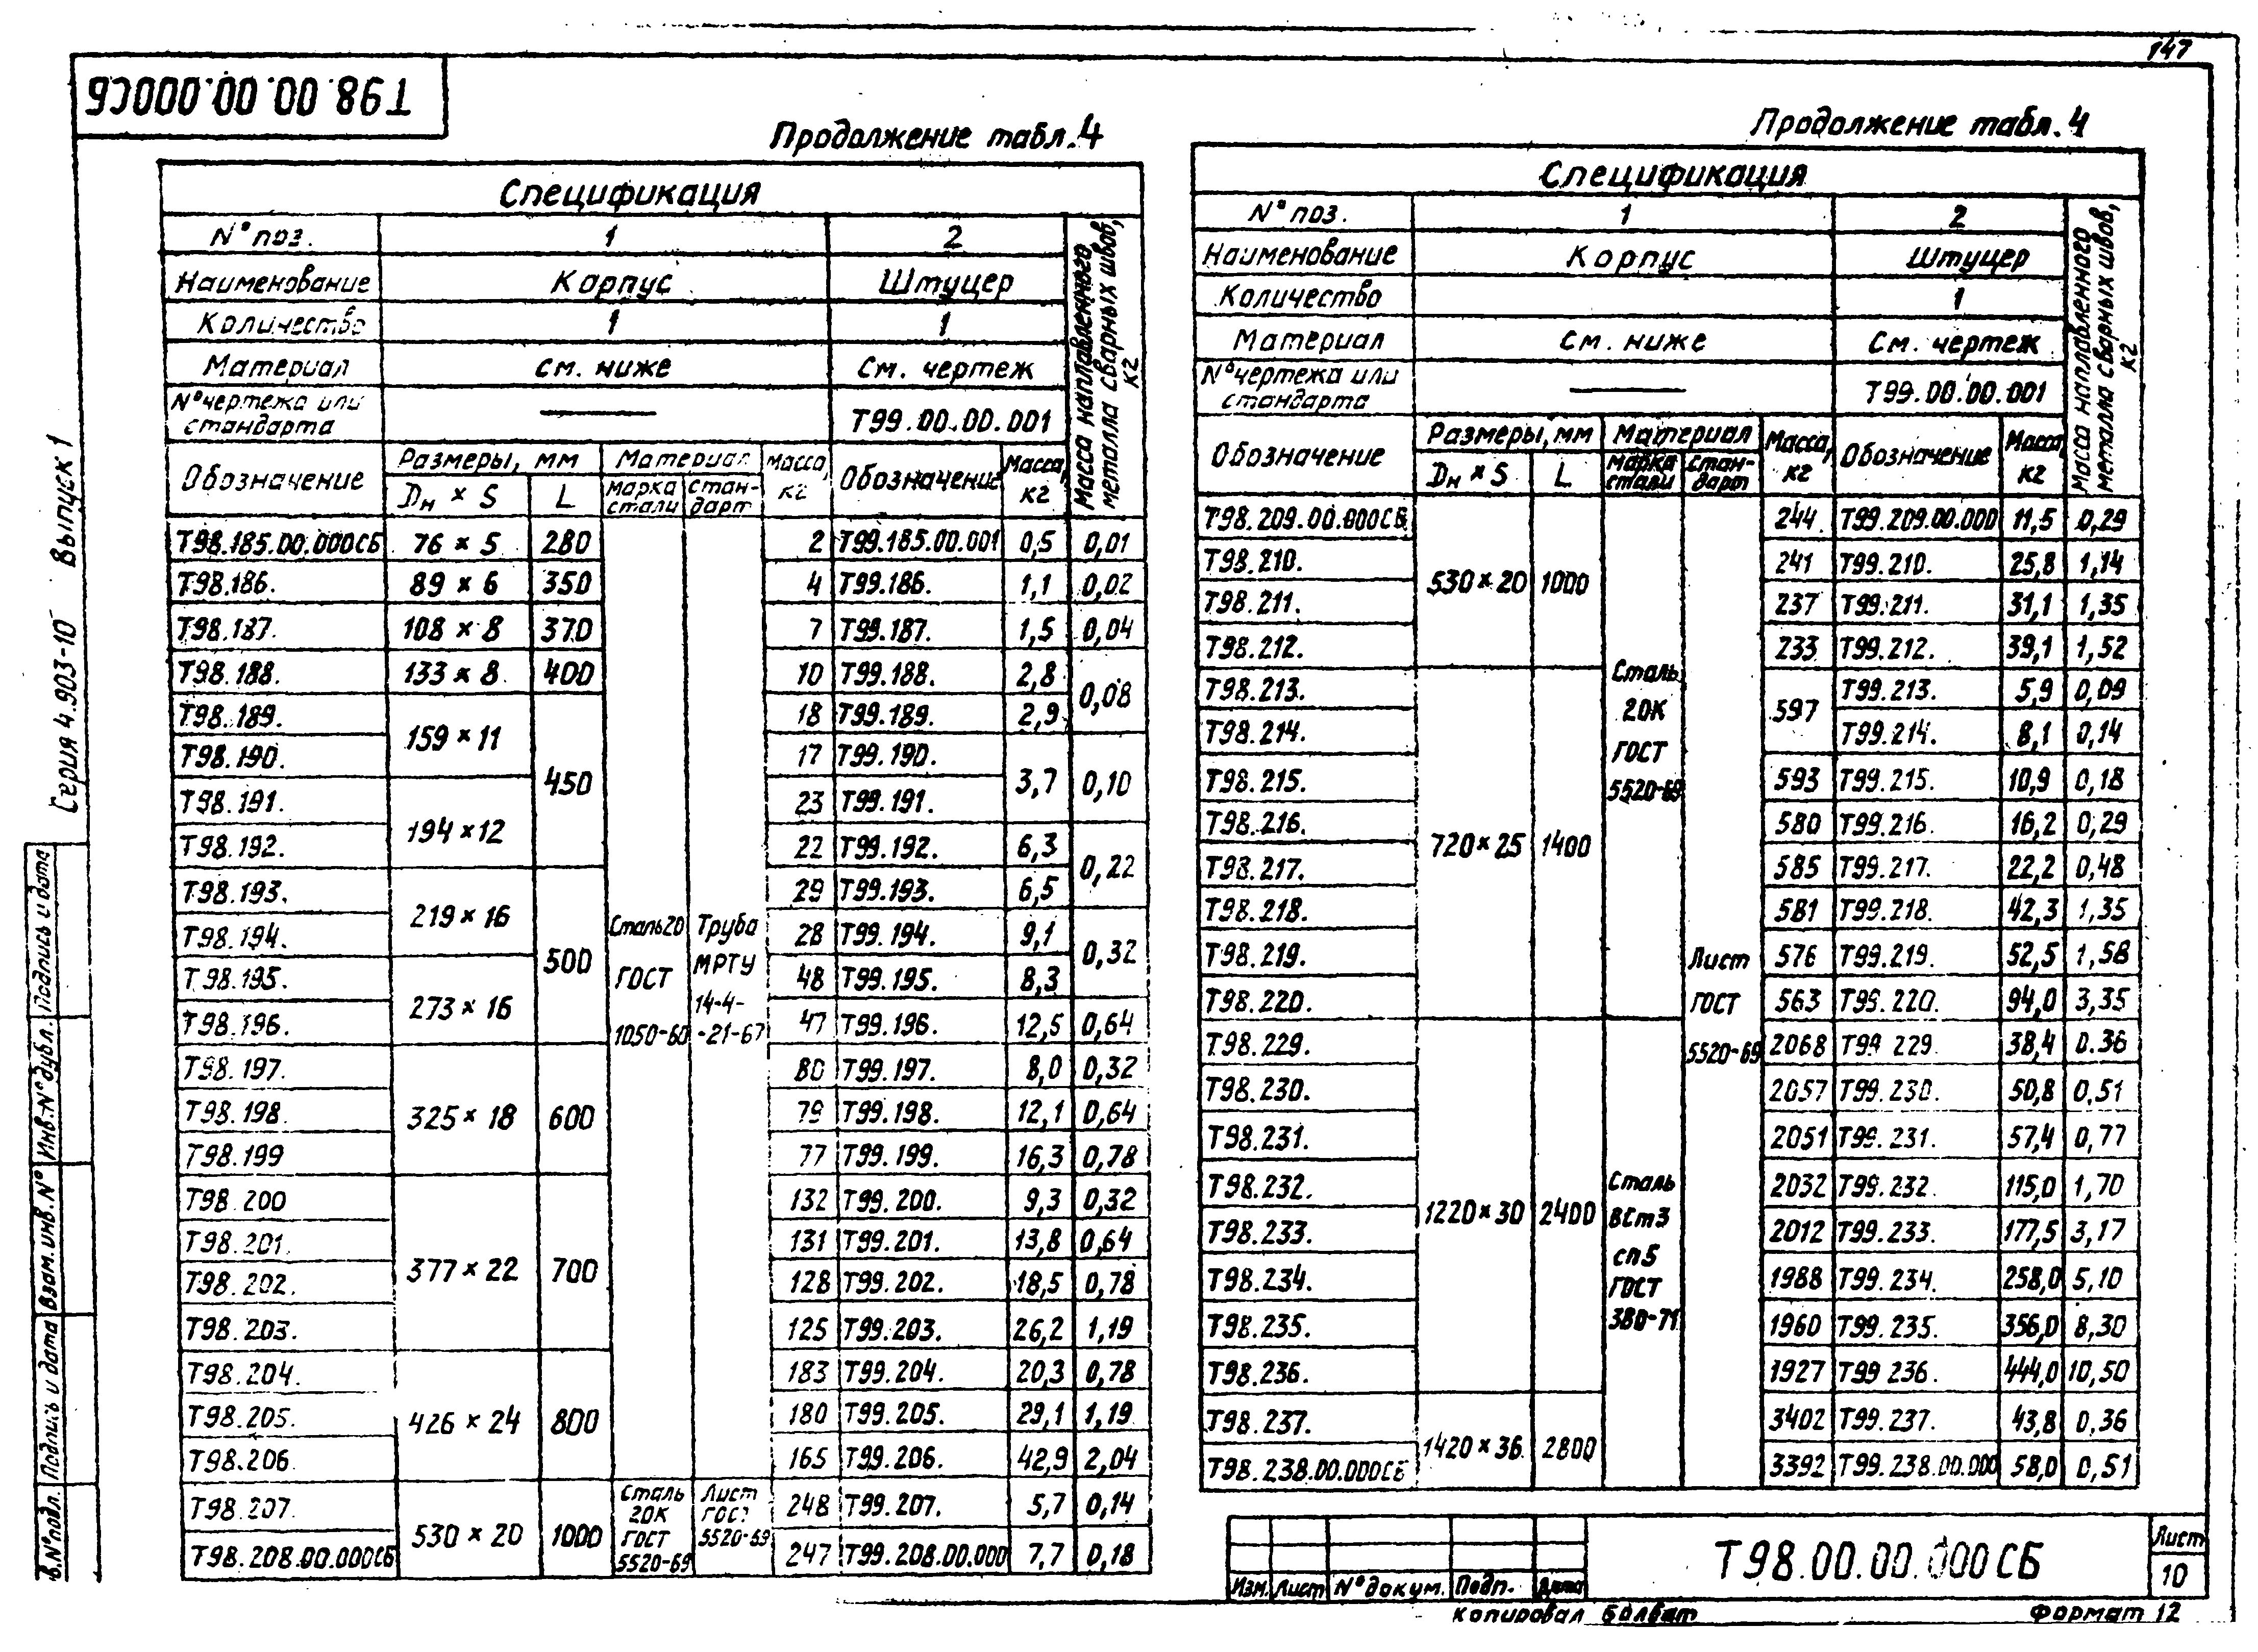 147
Т98.00.00.000СБ
Серия 4.903-10 Выпуск 1
Продолжение табл.4
Спецификация
N° поз. 1 2
Наименование Корпус Штуцер
Количество 1 1
Материал см. ниже См. чертеж
N° чертежа или стандарта —— Т99.00.00.001
Масса наплавленного металла сварных швов, кг
Обозначение Размеры, мм Материал Масса, кг Обозначение Масса, кг
Dн × S L марка стали стандарт
Т98.185.00.000СБ 76 × 5 280 2 Т99.185.00.001 0,5 0,01
Т98.186. 89 × 6 350 4 Т99.186. 1,1 0,02
Т98.187. 108 × 8 370 7 Т99.187. 1,5 0,04
Т98.188. 133 × 8 400 10 Т99.188. 2,8 0,08
Т98.189. 159 × 11 450 18 Т99.189. 2,9
Т98.190. 17 Т99.190. 3,7 0,10
Т98.191. 194 × 12 23 Т99.191.
Т98.192. 22 Т99.192. 6,3 0,22
Т98.193. 219 × 16 500 29 Т99.193. 6,5
Т98.194. 28 Т99.194. 9,1 0,32
Т98.195. 273 × 16 48 Т99.195. 8,3
Т98.196. 47 Т99.196. 12,5 0,64
Сталь20 ГОСТ 1050-60 Труба МРТУ 14-4--21-67
Т98.197. 325 × 18 600 80 Т99.197. 8,0 0,32
Т98.198. 79 Т99.198. 12,1 0,64
Т98.199 77 Т99.199. 16,3 0,78
Т98.200 377 × 22 700 132 Т99.200. 9,3 0,32
Т98.201. 131 Т99.201. 13,8 0,64
Т98.202. 128 Т99.202. 18,5 0,78
Т98.203. 125 Т99.203. 26,2 1,19
Т98.204. 426 × 24 800 183 Т99.204. 20,3 0,78
Т98.205. 180 Т99.205. 29,1 1,19
Т98.206. 165 Т99.206. 42,9 2,04
Т98.207. 530 × 20 1000 Сталь 20К ГОСТ 5520-69 Лист ГОСТ 5520-69 248 Т99.207. 5,7 0,14
Т98.208.00.000СБ 247 Т99.208.00.000 7,7 0,18
Продолжение табл.4
Спецификация
N° поз. 1 2
Наименование Корпус Штуцер
Количество 1
Материал См. ниже См. чертеж
N° чертежа или стандарта —— Т99.00.00.001
Масса наплавленного металла сварных швов, кг
Обозначение Размеры, мм Материал Масса, кг Обозначение Масса, кг
Dн × S L марка стали стандарт
Т98.209.00.000СБ 530 × 20 1000 244 Т99.209.00.000 11,5 0,29
Т98.210. 241 Т99.210. 25,8 1,14
Т98.211. 237 Т99.211. 31,1 1,35
Т98.212. 233 Т99.212. 39,1 1,52
Т98.213. 720 × 25 1400 597 Т99.213. 5,9 0,09
Т98.214. Т99.214. 8,1 0,14
Т98.215. 593 Т99.215. 10,9 0,18
Т98.216. 580 Т99.216. 16,2 0,29
Т98.217. 585 Т99.217. 22,2 0,48
Т98.218. 581 Т99.218. 42,3 1,35
Т98.219. 576 Т99.219. 52,5 1,58
Т98.220. 563 Т99.220. 94,0 3,35
Сталь 20К ГОСТ 5520-69
Лист ГОСТ 5520-69
Т98.229. 1220 × 30 2400 2068 Т99 229. 38,4 0.36
Т98.230. 2057 Т99.230. 50,8 0,51
Т98.231. 2051 Т99.231. 57,4 0,77
Т98.232. 2032 Т99.232. 115,0 1,70
Т98.233. 2012 Т99.233. 177,5 3,17
Т98.234. 1988 Т99.234. 258,0 5,10
Т98.235. 1960 Т99.235. 356,0 8,30
Т98.236. 1927 Т99 236. 444,0 10,50
Сталь ВСт3 сп5 ГОСТ 380-71
Т98.237. 1420 × 36 2800 3402 Т99.237. 43,8 0,36
Т98.238.00.000СБ 3392 Т99.238.00.000 58,0 0,51
Изм. Лист N° докум. Подп. Дата
Т98.00.00.000СБ
Лист
10
Копировал Болват Формат 12
Подпись и дата
Инв.N° дубл.
Взам.инв.N°
Подпись и дата
в.N°подл.